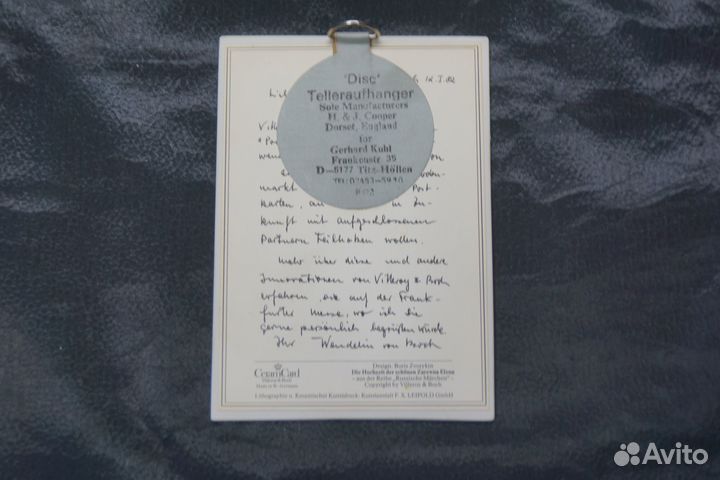 'Disc'
Telleraufhanger
Sole Manufacturers
H. & J. Cooper
Dorset, England
for
Gerhard Kuhl
Frankenstr 35
D-5177 Titz-Höllen
TEL: 02463-5930
markt
Post-
karten, in Zu-
kunft mit aufgeschlossenen
Partnern Feilhaben wollen.
Mehr über diese und andere
Innovationen von Villeroy & Boch
erfahren auf der Frank-
furter Messe, wo ich Sie
gerne persönlich begrüßen würde.
Ihr Wendelin von Boch
CeramCard
Villeroy & Boch
Made in W.-Germany
Design: Boris Zvorykin
Die Hochzeit der schönen Zarewna Elena
– aus der Reihe „Russische Märchen“ –
Copyright by Villeroy & Boch
Lithographie u. Keramischer Kunstdruck: Kunstanstalt F. X. LEIPOLD GmbH
Avito